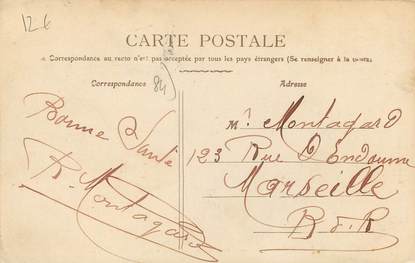 12 €
CARTE POSTALE
La Correspondance au recto n'est pas acceptée par tous les pays étrangers (Se renseigner à la Poste)
Correspondance
Adresse
(84)
Bonne Santé
R. Montagard
Mr Montagard
123 Rue d'Endoume
Marseille
B d R